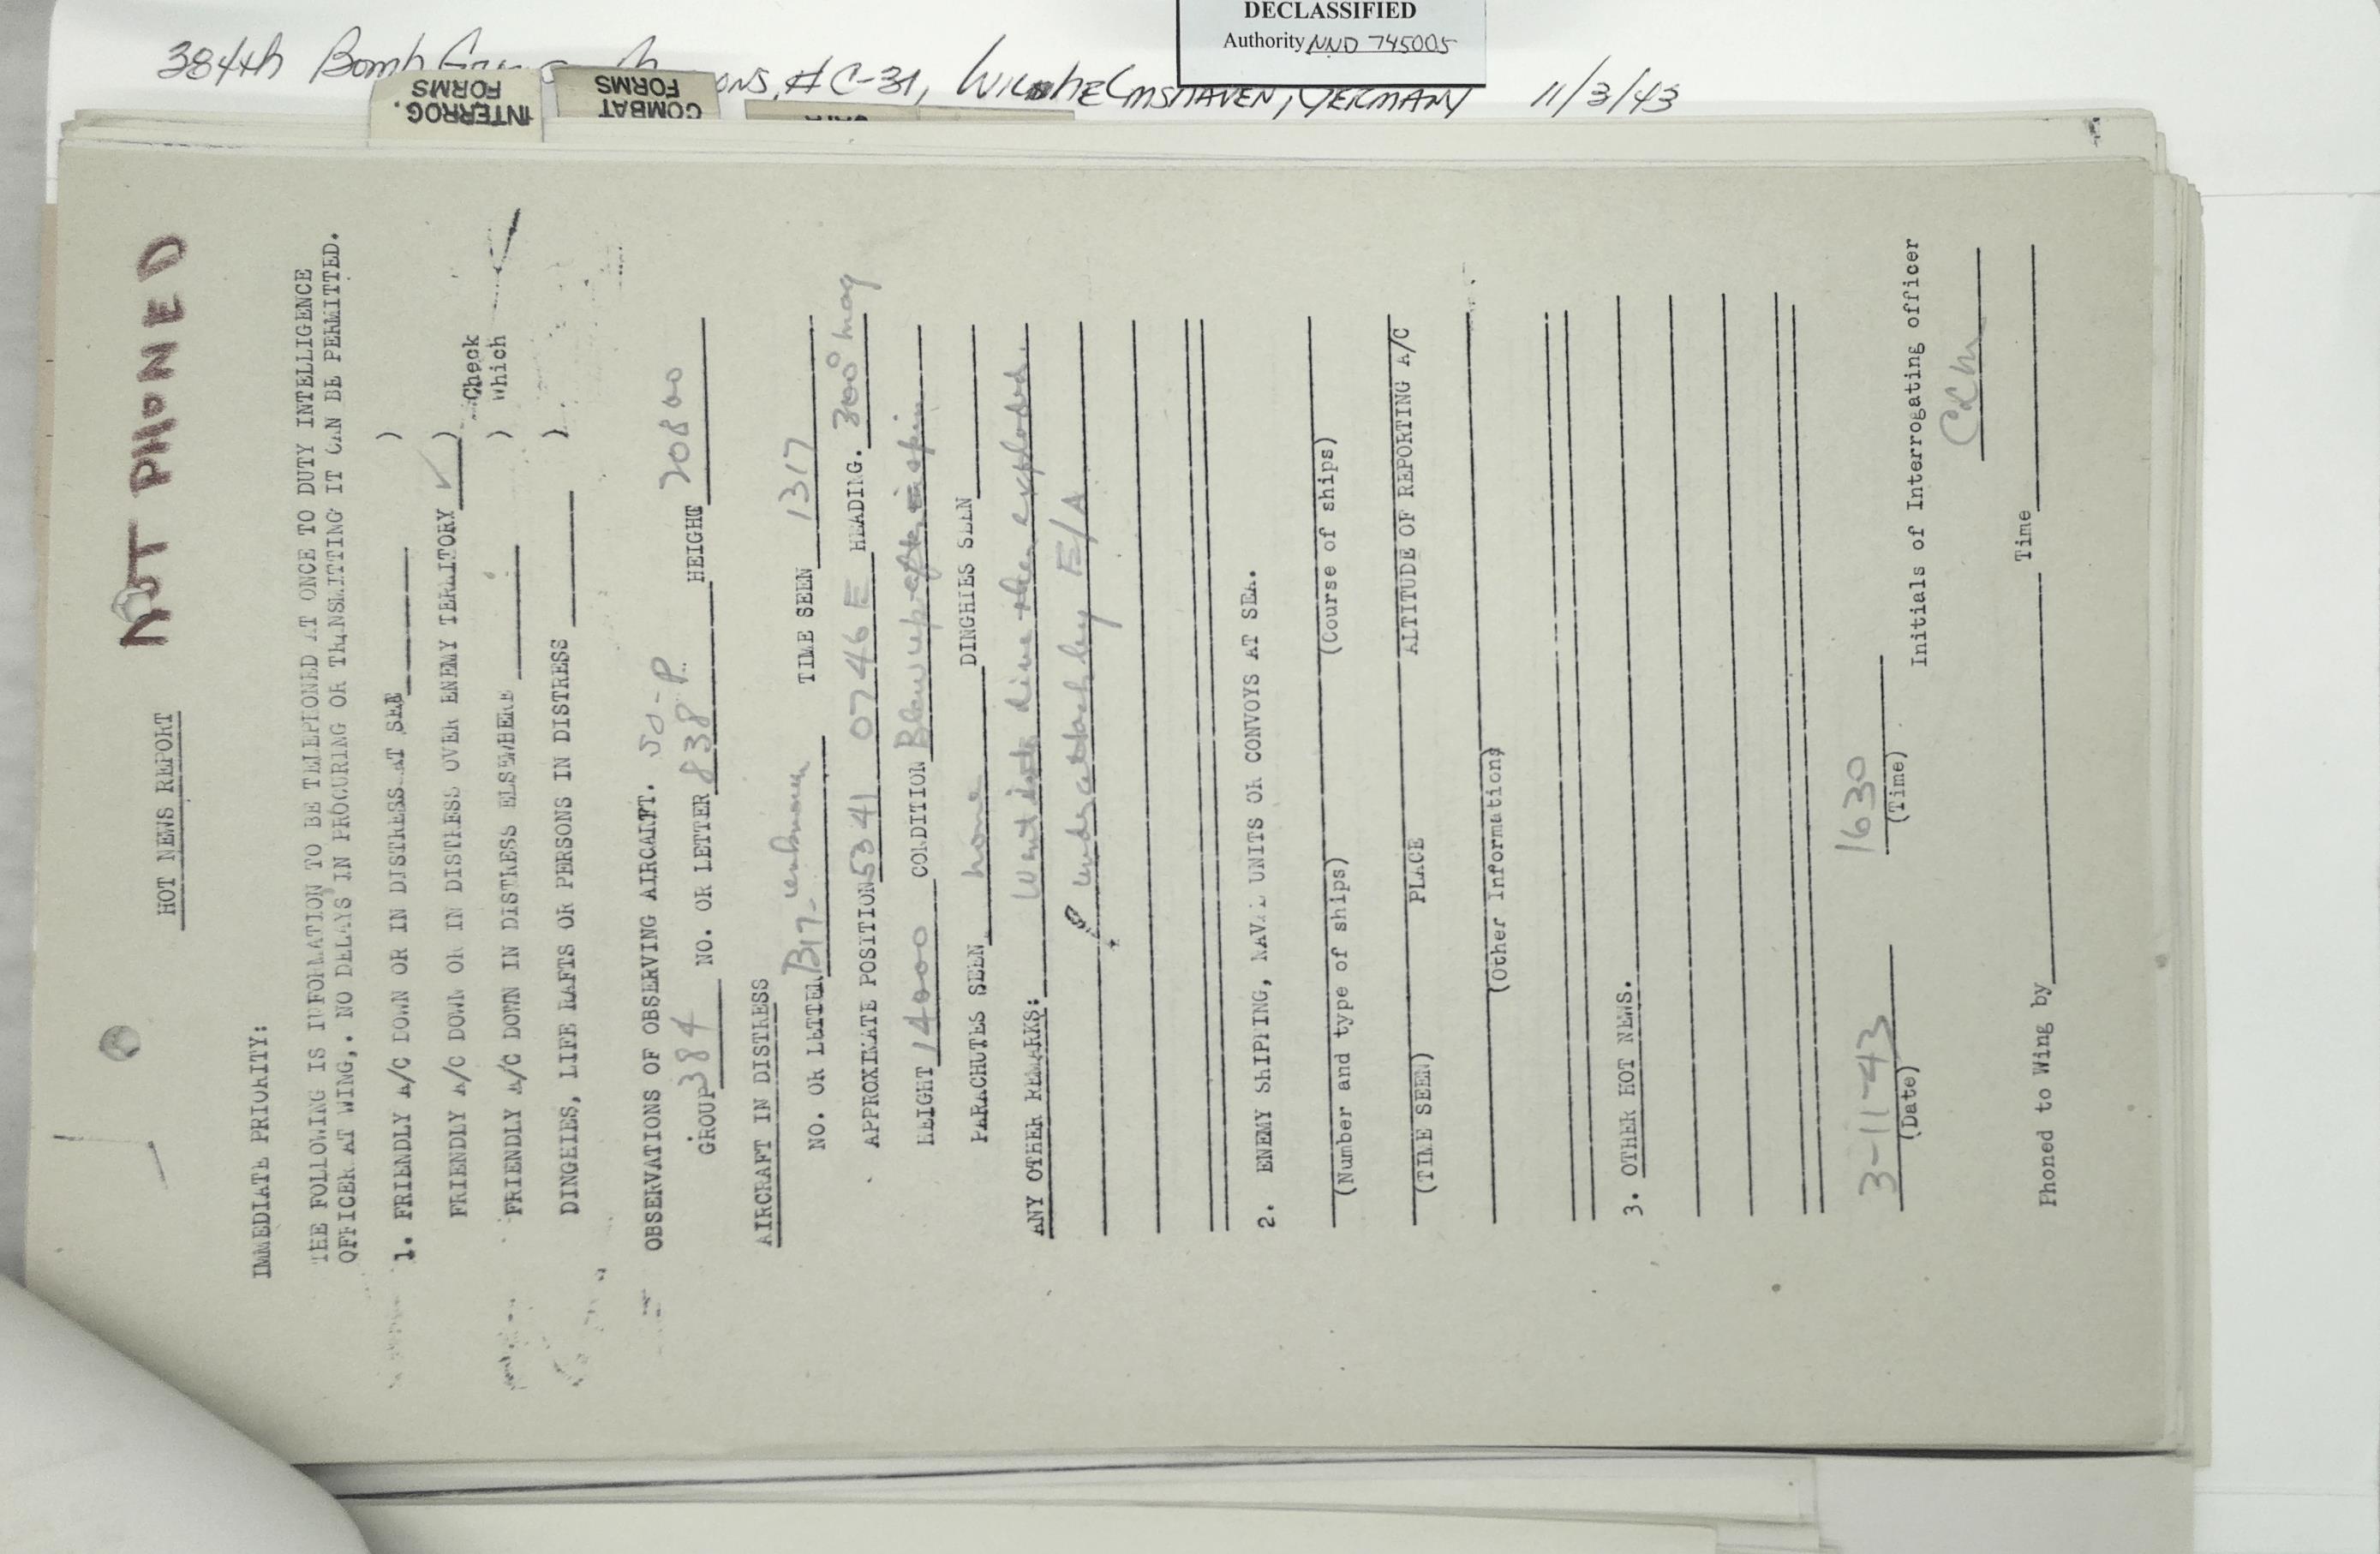 DECLASSIFIED
Authority NND 745005
384th Bomb ONS, #C-31, WILHELMSHAVEN, GERMANY 11/3/43
INTERROG.
FORMS
COMBAT
FORMS
NOT PHONED
HOT NEWS REPORT
IMMEDIATE PRIORITY:
THE FOLLOWING IS INFORMATION TO BE TELEPHONED AT ONCE TO DUTY INTELLIGENCE
OFFICER AT WING,. NO DELAYS IN PROCURING OR TRANSMITTING IT CAN BE PERMITTED.
1. FRIENDLY A/C DOWN OR IN DISTRESS AT SEA )
FRIENDLY A/C DOWN OR IN DISTRESS OVER ENEMY TERRITORY ✓ )
Check
FRIENDLY A/C DOWN IN DISTRESS ELSEWHERE ) Which
DINGEIES, LIFE RAFTS OR PERSONS IN DISTRESS )
OBSERVATIONS OF OBSERVING AIRCARFT. SO-P
GROUP 384 NO. OR LETTER 838 HEIGHT 20800
AIRCRAFT IN DISTRESS
NO. OR LETTER B17-unknown TIME SEEN 1317
APPROXIMATE POSITION 5341 0746 E HEADING. 300° mag
HEIGHT 14000 CONDITION Blew up after spin
PARACHUTES SEEN none DINGHIES SEEN
ANY OTHER REMARKS: Went into dive then exploded
under attack by E/A
2. ENEMY SHIPPING, NAVAL UNITS OR CONVOYS AT SEA.
(Number and type of ships) (Course of ships)
(TIME SEEN) PLACE ALTITUDE OF REPORTING A/C
(Other Information)
3. OTHER HOT NEWS.
3-11-43 1630
(Date) (Time) Initials of Interrogating officer
Phoned to Wing by Time